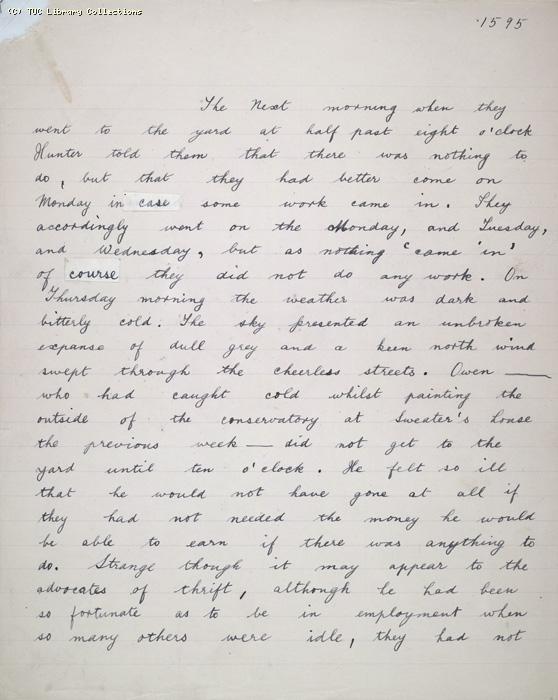 (C) TUC Library Collections
1595
The Next morning when they
went to the yard at half past eight o'clock
Hunter told them that there was nothing to
do, but that they had better come on
Monday in case some work came in. They
accordingly went on the Monday, and Tuesday,
and Wednesday, but as nothing 'came 'in'
of course they did not do any work. On
Thursday morning the weather was dark and
bitterly cold. The sky presented an unbroken
expanse of dull grey and a keen north wind
swept through the cheerless streets. Owen —
who had caught cold whilst painting the
outside of the conservatory at Sweater's house
the previous week — did not get to the
yard until ten o'clock. He felt so ill
that he would not have gone at all if
they had not needed the money he would
be able to earn if there was anything to
do. Strange though it may appear to the
advocates of thrift, although he had been
so fortunate as to be in employment when
so many others were idle, they had not